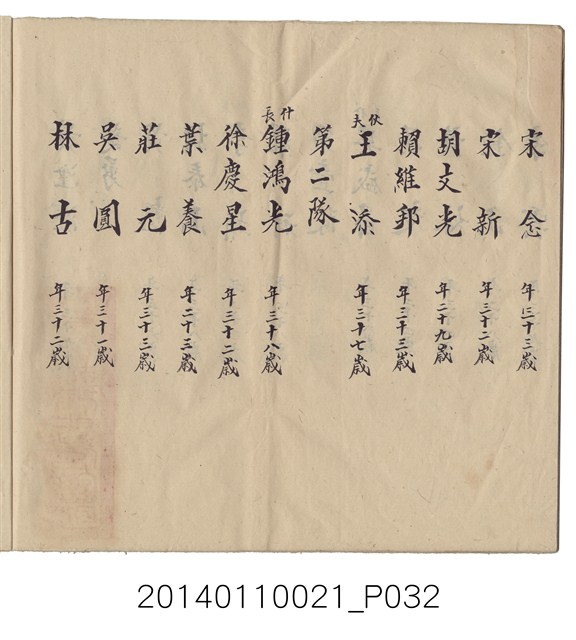 宋念 年三十三歲
宋新 年三十二歲
胡文光 年二十九歲
賴維邦 年三十三歲
伙夫 王添 年三十七歲
第二隊
什長 鍾鴻光 年三十八歲
徐慶星 年三十二歲
葉養 年二十三歲
莊元 年三十三歲
吳圓 年三十一歲
林古 年三十二歲
20140110021_P032